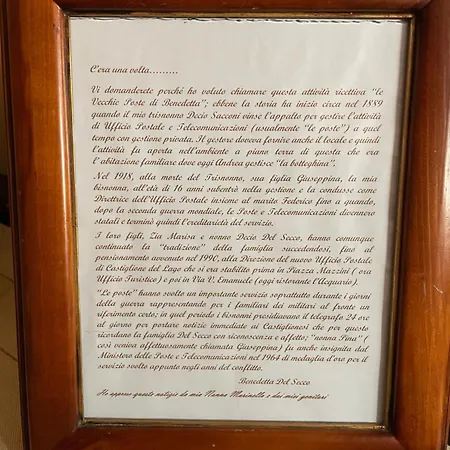 C'era una volta.........
Vi domanderete perché ho voluto chiamare questa attività ricettiva "le
Vecchie Poste di Benedetta"; ebbene la storia ha inizio circa nel 1889
quando il mio trisnonno Decio Sacconi vinse l'appalto per gestire l'attività
di Ufficio Postale e Telecomunicazioni (usualmente "le poste") a quel
tempo con gestione privata. Il gestore doveva fornire anche il locale e quindi
l'attività fu aperta nell'ambiente a piano terra di questa che era
l'abitazione familiare dove oggi Andrea gestisce "la botteghina".
Nel 1918, alla morte del Trisnonno, sua figlia Giuseppina, la mia
bisnonna, all'età di 16 anni subentrò nella gestione e la condusse come
Direttrice dell'Ufficio Postale insieme al marito Federico fino a quando,
dopo la seconda guerra mondiale, le Poste e Telecomunicazioni divennero
statali e terminò quindi l'ereditarietà del servizio.
I loro figli, Zia Marisa e nonno Decio Del Secco, hanno comunque
continuato la "tradizione" della famiglia succedendosi, fino al
pensionamento avvenuto nel 1990, alla Direzione del nuovo Ufficio Postale
di Castiglione del Lago che si era stabilito prima in Piazza Mazzini ( ora
Ufficio Turistico) e poi in Via V. Emanuele (oggi ristorante L'Acquario).
"Le poste" hanno svolto un importante servizio soprattutto durante i giorni
della guerra rappresentando per i familiari dei militari al fronte un
riferimento certo; in quel periodo i bisnonni presidiavano il telegrafo 24 ore
al giorno per portare notizie immediate ai Castiglionesi che per questo
ricordano la famiglia Del Secco con riconoscenza e affetto; "nonna Pina" (
così veniva affettuosamente chiamata Giuseppina) fu anche insignita dal
Ministero delle Poste e Telecomunicazioni nel 1964 di medaglia d'oro per il
servizio svolto appunto negli anni del conflitto.
Benedetta Del Secco
Ho appreso queste notizie da mia Nonna Marinella e dai miei genitori